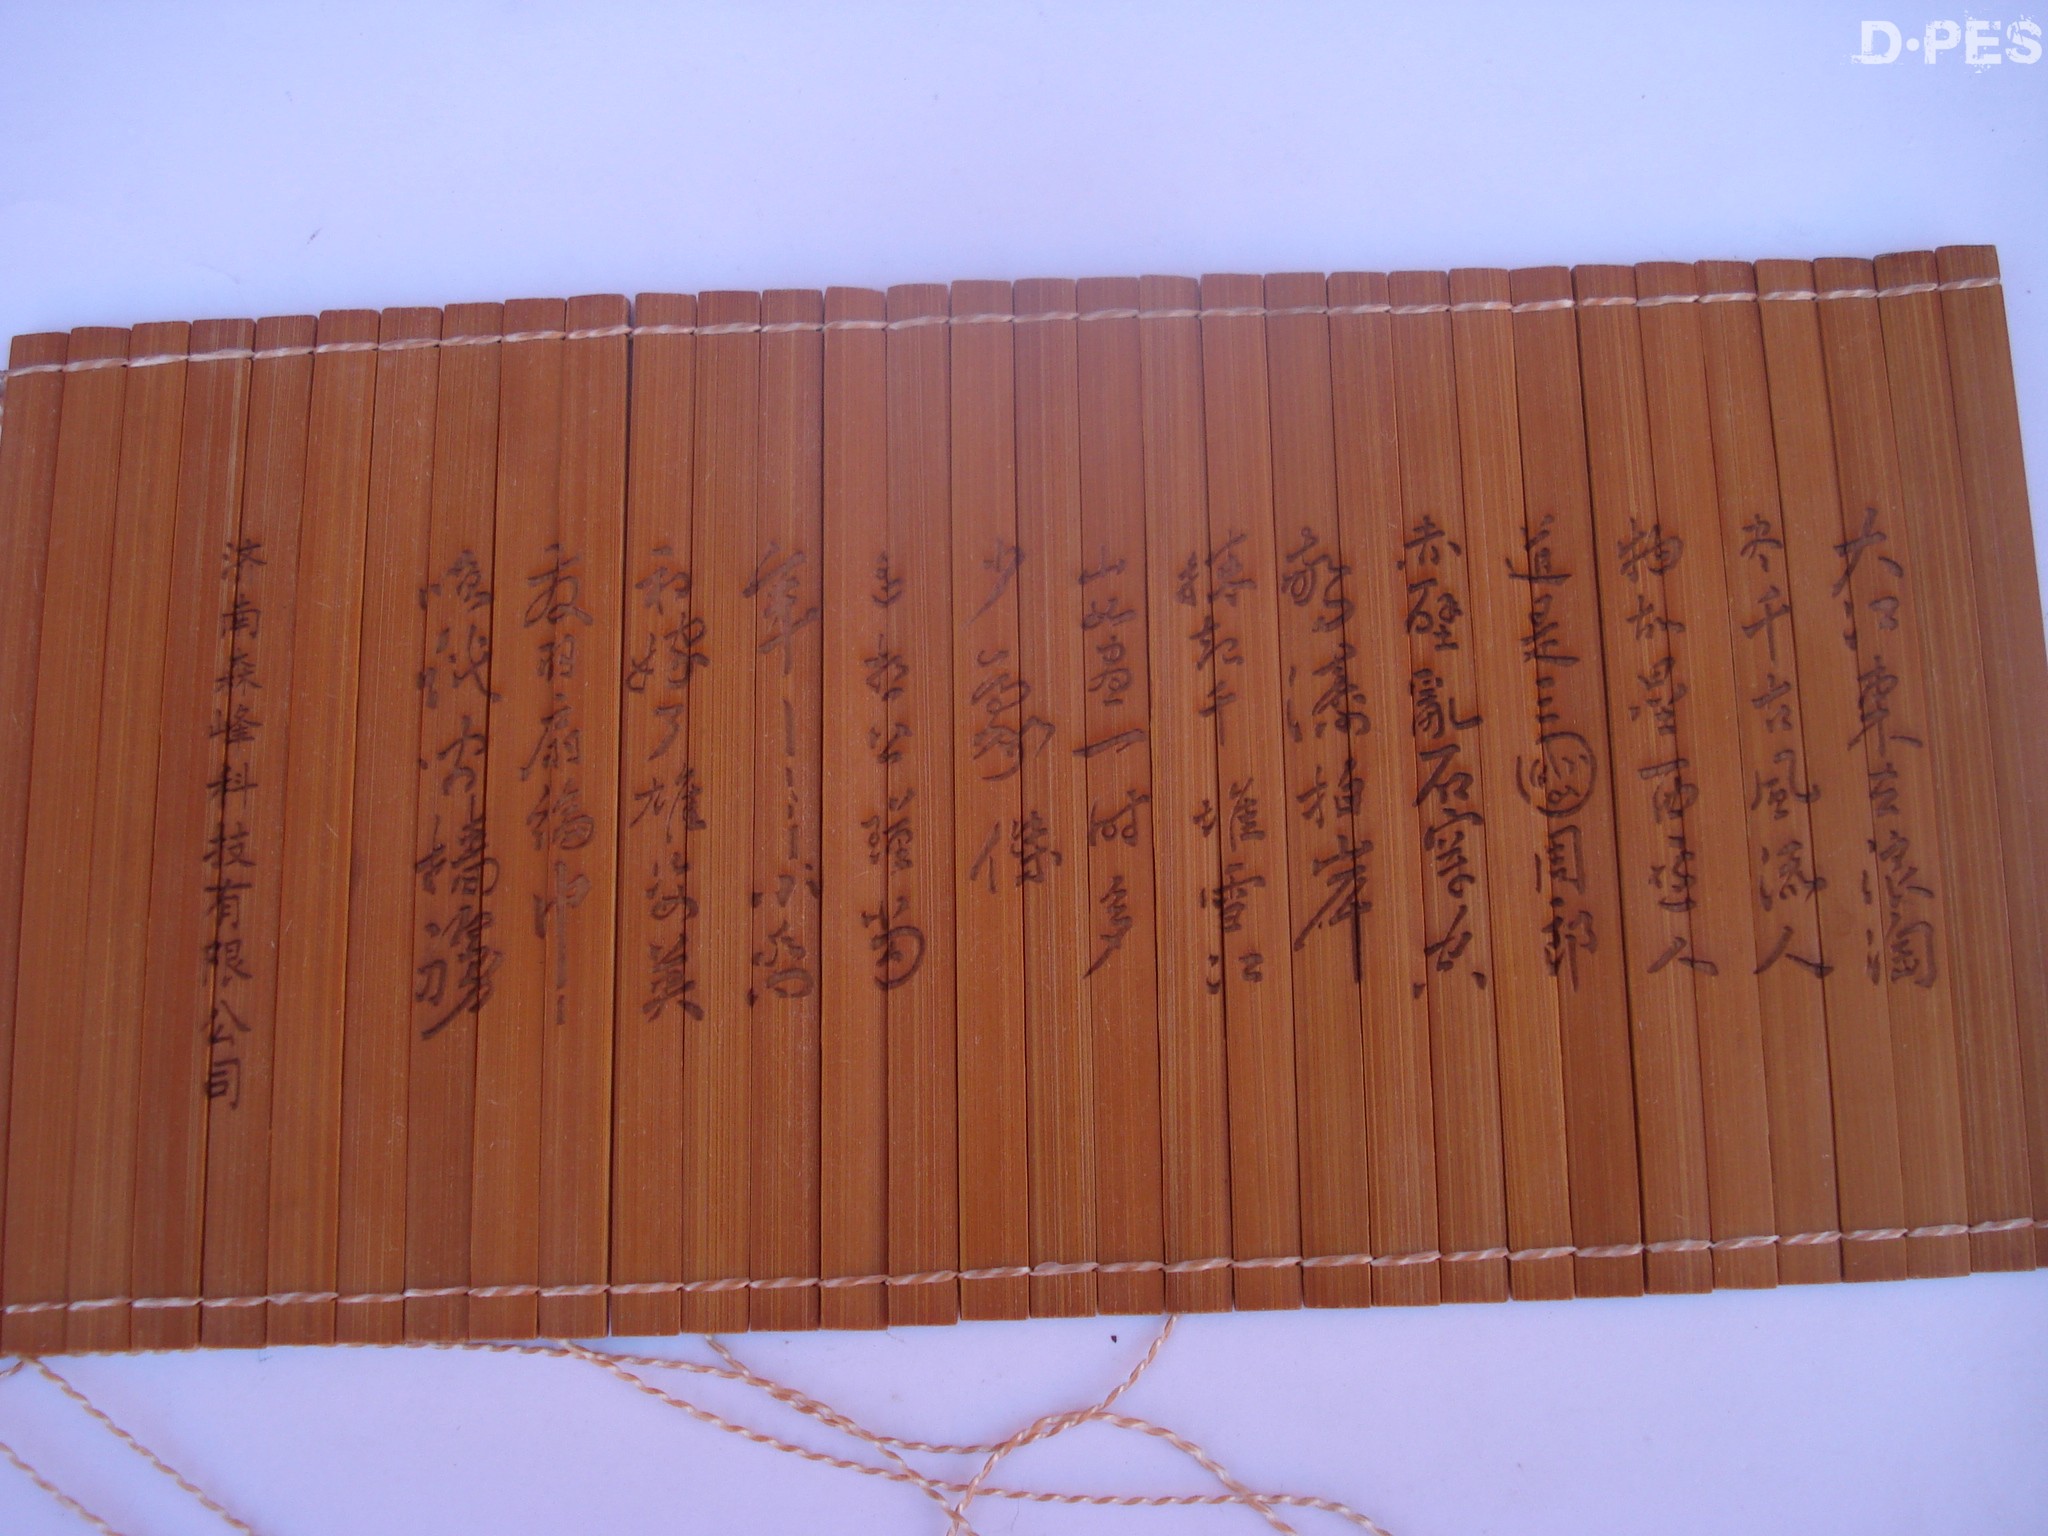 大江東去浪淘
尽千古風流人
物故壘西邊人
道是三國周郎
赤壁亂石穿空
驚濤拍岸
捲起千堆雪江
山如畫一時多
少豪傑
遙想公瑾當
年小喬
初嫁了雄姿英
發羽扇綸巾
檣櫓
济南森峰科技有限公司
D·PES